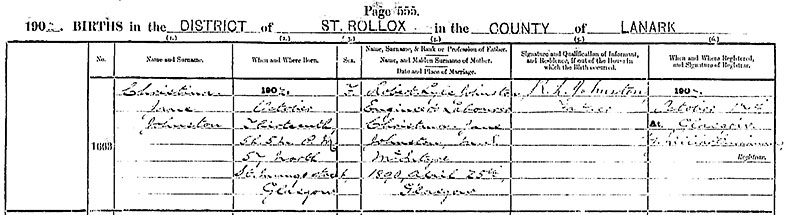 Page 555.
190 . BIRTHS in the DISTRICT of ST. ROLLOX in the COUNTY of LANARK
(1.) (2.) (3.) (4.) (5.) (6.)
No.
Name and Surname.
When and Where Born.
Sex.
Name, Surname, & Rank or Profession of Father.
Name, and Maiden Surname of Mother.
Date and Place of Marriage.
Signature and Qualification of Informant,
and Residence, if out of the House in
which the Birth occurred.
When and Where Registered,
and Signature of Registrar.
1663
Christina
Jane
Johnston
190
October
Thirteenth
P M
57 North
St. Mungo Street,
Glasgow
F
Robert Johnston
Engineer's Labourer
Christina Jane
Johnston, M.S.
McIntyre
1890, April 25th,
Glasgow
R. L. Johnston
Father
190
October
At Glasgow
Registrar.